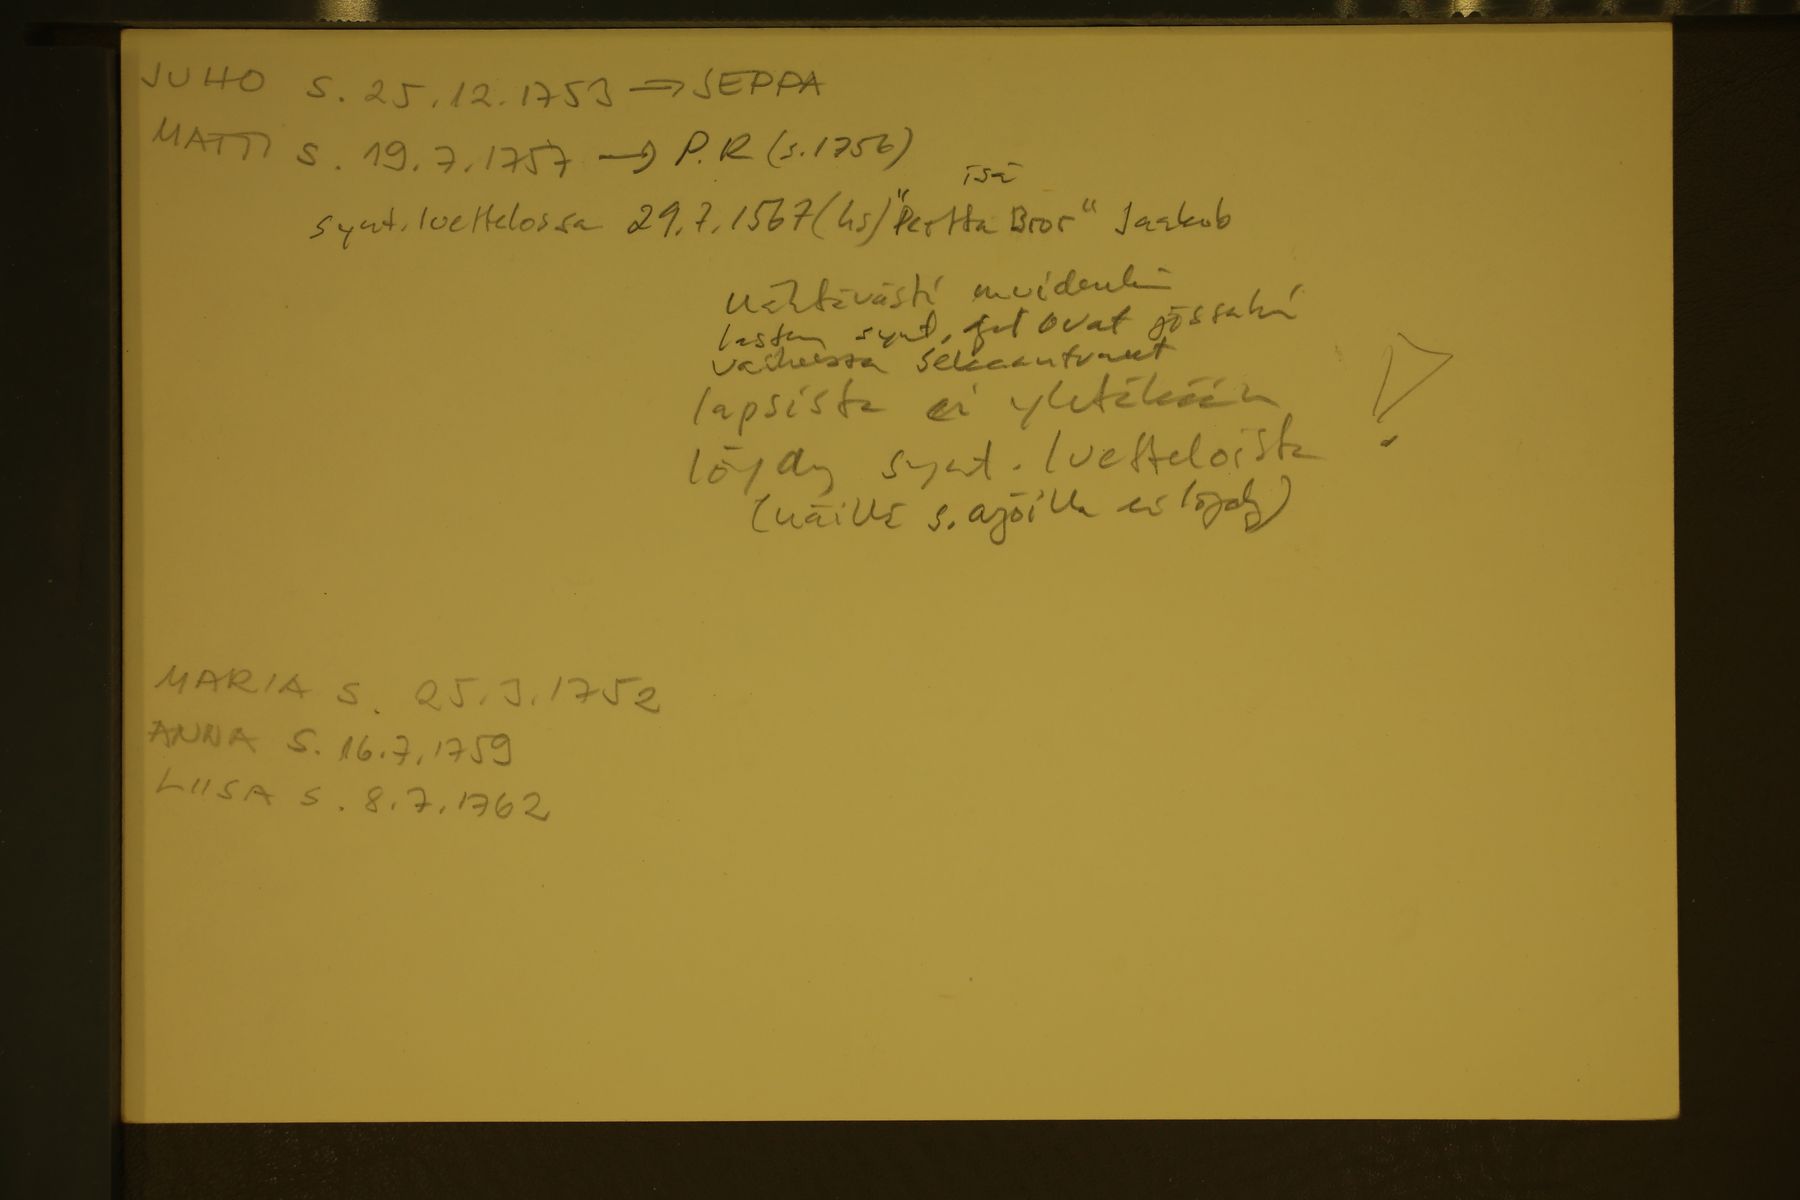 JUHO s. 25.12.1753 → SEPPÄ
MATTI s. 19.7.1757 → P.R (s.1756)
isä
synt. luettelossa 29.7.1567 (hs) "Pertta Bror" Jaakob
nähtävästi muidenkin
lasten synt. ajat ovat jossakin
vaiheessa sekaantuneet
lapsista ei yhtäkään
löydy synt. luetteloista
(näillä s. ajoilla ei löydy)
!
MARIA s. 25.3.1752
ANNA s. 16.7.1759
LIISA s. 8.7.1762